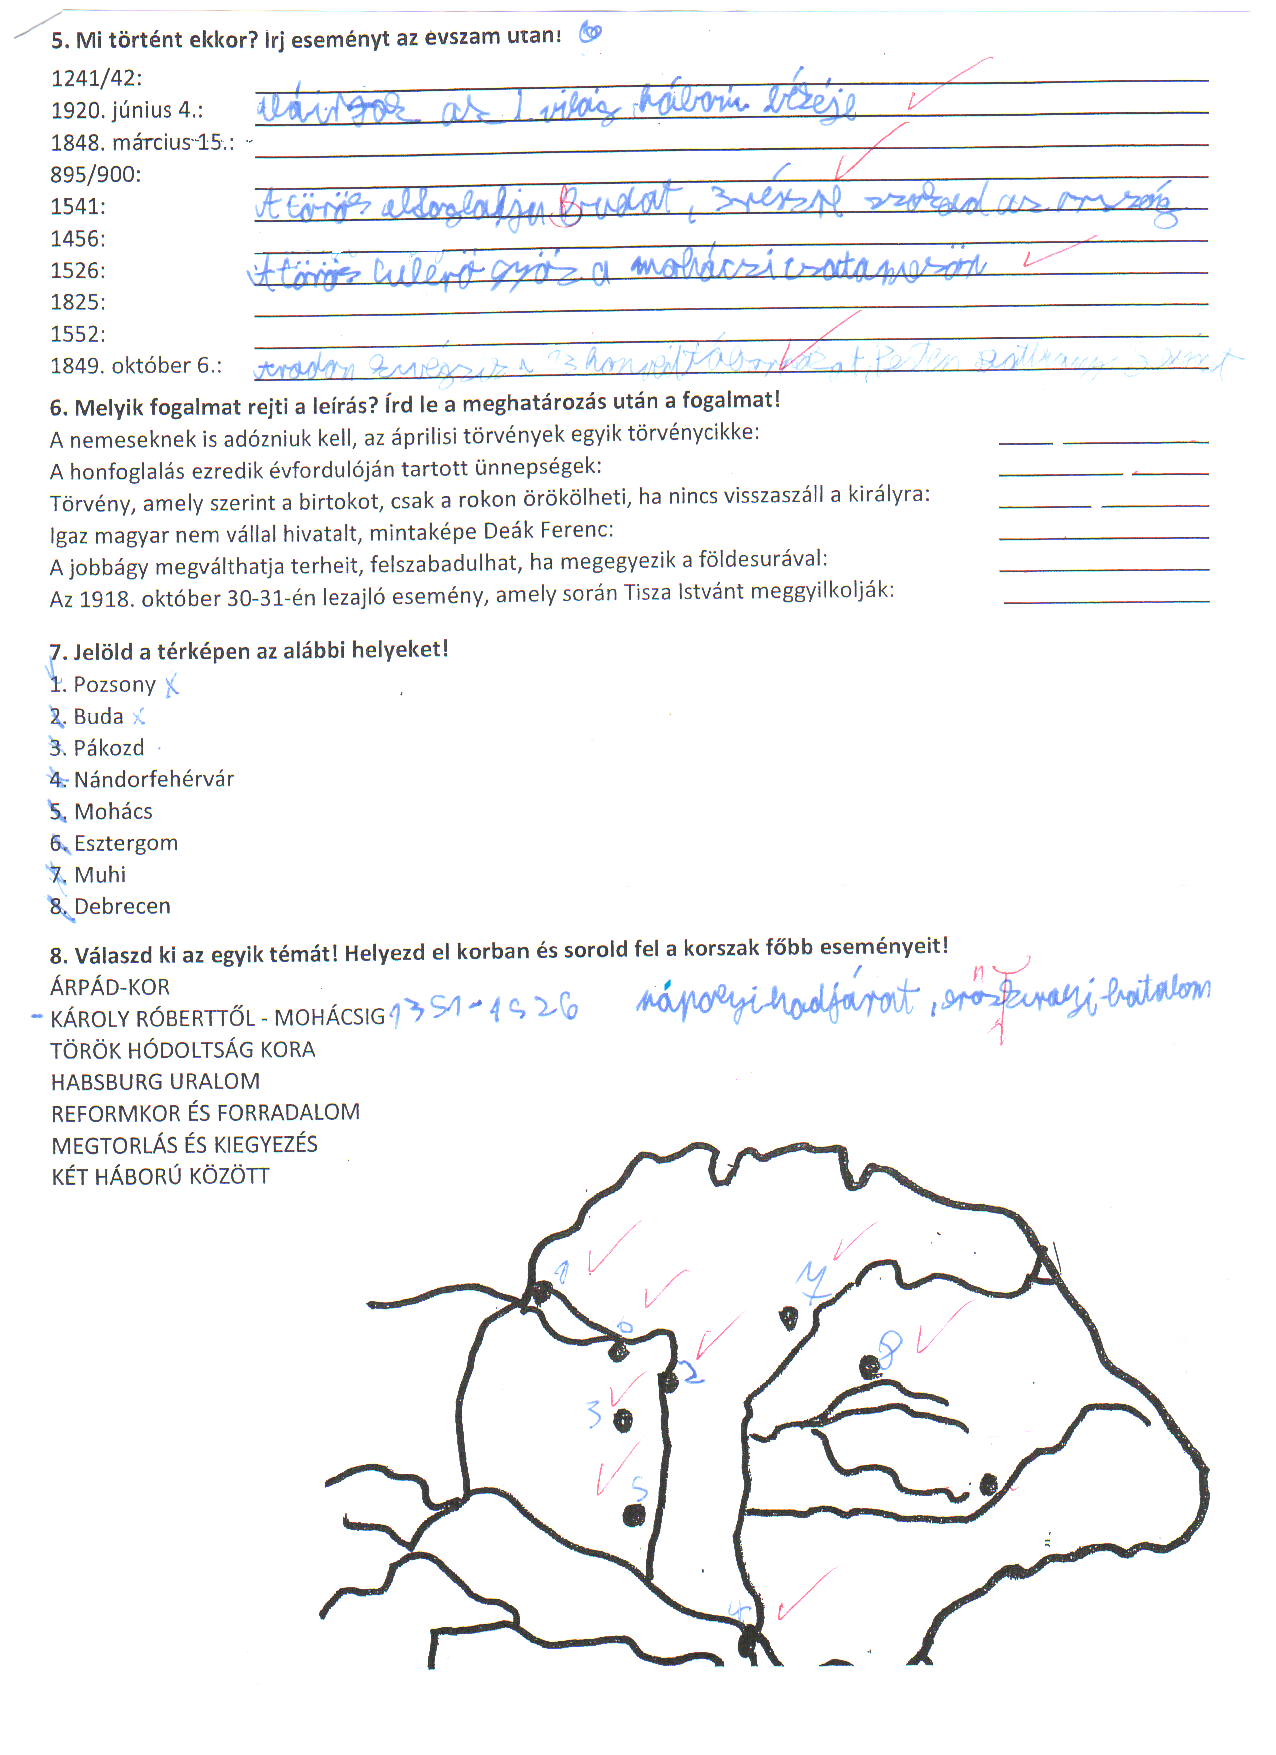 5. Mi történt ekkor? Írj eseményt az évszám után!
1241/42:
1920. június 4.: az 1. világ háború
1848. március 15.:
895/900:
1541: A török elfoglalja Budát, 3 részre szakad az ország
1456:
1526: A török túlerő győz a mohácsi csatamezőn
1825:
1552:
1849. október 6.: Aradon 13
6. Melyik fogalmat rejti a leírás? Írd le a meghatározás után a fogalmat!
A nemeseknek is adózniuk kell, az áprilisi törvények egyik törvénycikke:
A honfoglalás ezredik évfordulóján tartott ünnepségek:
Törvény, amely szerint a birtokot, csak a rokon örökölheti, ha nincs visszaszáll a királyra:
Igaz magyar nem vállal hivatalt, mintaképe Deák Ferenc:
A jobbágy megválthatja terheit, felszabadulhat, ha megegyezik a földesurával:
Az 1918. október 30-31-én lezajló esemény, amely során Tisza Istvánt meggyilkolják:
7. Jelöld a térképen az alábbi helyeket!
1. Pozsony x
2. Buda x
3. Pákozd
4. Nándorfehérvár
5. Mohács
6. Esztergom
7. Muhi
8. Debrecen
8. Válaszd ki az egyik témát! Helyezd el korban és sorold fel a korszak főbb eseményeit!
ÁRPÁD-KOR
- KÁROLY RÓBERTTŐL - MOHÁCSIG 1351-1526 nápolyi hadjárat, erős királyi hatalom
TÖRÖK HÓDOLTSÁG KORA
HABSBURG URALOM
REFORMKOR ÉS FORRADALOM
MEGTORLÁS ÉS KIEGYEZÉS
KÉT HÁBORÚ KÖZÖTT
1
7
6
8
2
3
5
4